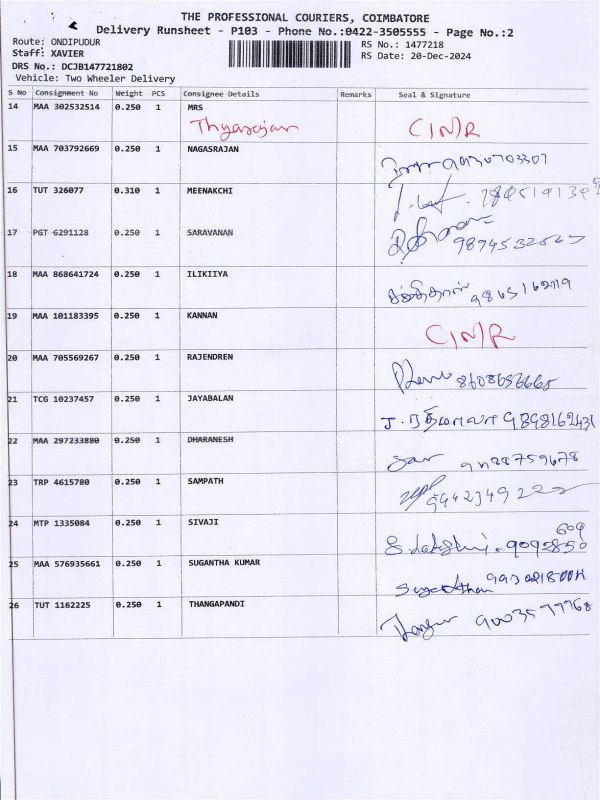 THE PROFESSIONAL COURIERS, COIMBATORE
Delivery Runsheet - P103 - Phone No.:0422-3505555 - Page No.:2
Route: ONDIPUDUR RS No.: 1477218
Staff: XAVIER RS Date: 20-Dec-2024
DRS No.: DCJB147721802
Vehicle: Two Wheeler Delivery
S No Consignment No Weight PCS Consignee Details Remarks Seal & Signature
14 MAA 302532514 0.250 1 MRS
Thyagarajan C(N)R
15 MAA 703792669 0.250 1 NAGASRAJAN
16 TUT 326077 0.310 1 MEENAKCHI
17 PGT 6291128 0.250 1 SARAVANAN
18 MAA 868641724 0.250 1 ILIKIIYA
19 MAA 101183395 0.250 1 KANNAN
C(N)R
20 MAA 705569267 0.250 1 RAJENDREN
21 TCG 10237457 0.250 1 JAYABALAN
22 MAA 297233880 0.250 1 DHARANESH
23 TRP 4615780 0.250 1 SAMPATH
24 MTP 1335084 0.250 1 SIVAJI
25 MAA 576935661 0.250 1 SUGANTHA KUMAR
26 TUT 1162225 0.250 1 THANGAPANDI